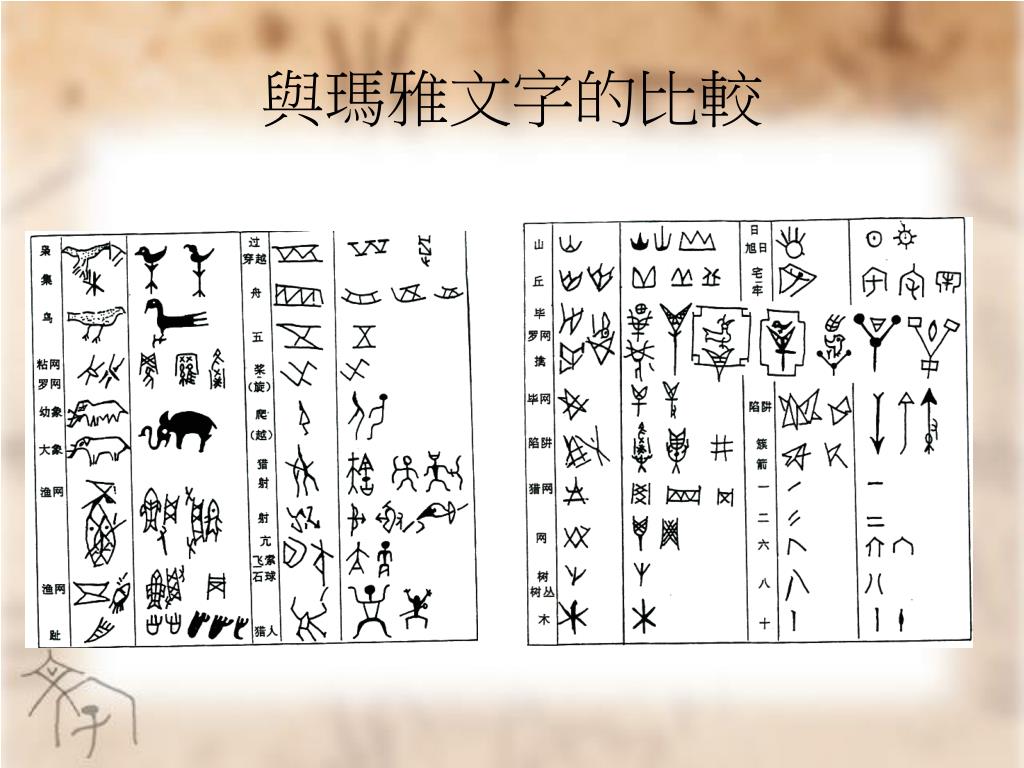 與瑪雅文字的比較
枭
集
鸟
粘网
罗网
幼象
大象
渔网
渔网
趾
过
穿越
舟
五
桨
(旋)
爬
(越)
猎
射
射
亢
飞索
石球
猎人
山
丘
毕
罗网
擒
毕网
陷阱
猎网
网
树
树丛
木
日
旭日
宅
牢
陷阱
簇
箭
一
二
六
八
十